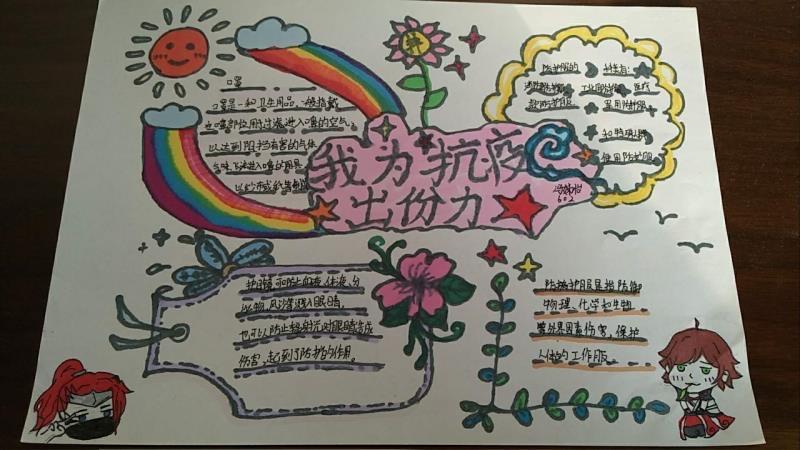 口罩
口罩是一种卫生用品,一般指戴
在口鼻部位用于过滤进入口鼻的空气,
以达到阻挡有害的气体
气味飞沫进入口鼻的用具
以纱布或纸等制成
我为抗疫
出份力
602
防护服的 种类有:
工业用防护服 医疗
款防护服 军用防护服
和特殊人群
使用防护服
护目镜可防止 液体液,分
风沙等进入眼睛,
也可以防止辐射光对眼睛造成
伤害,起到了防护的作用。
防护服是指防御
物理、化学和生物
等外界因素伤害,保护
人体的工作服